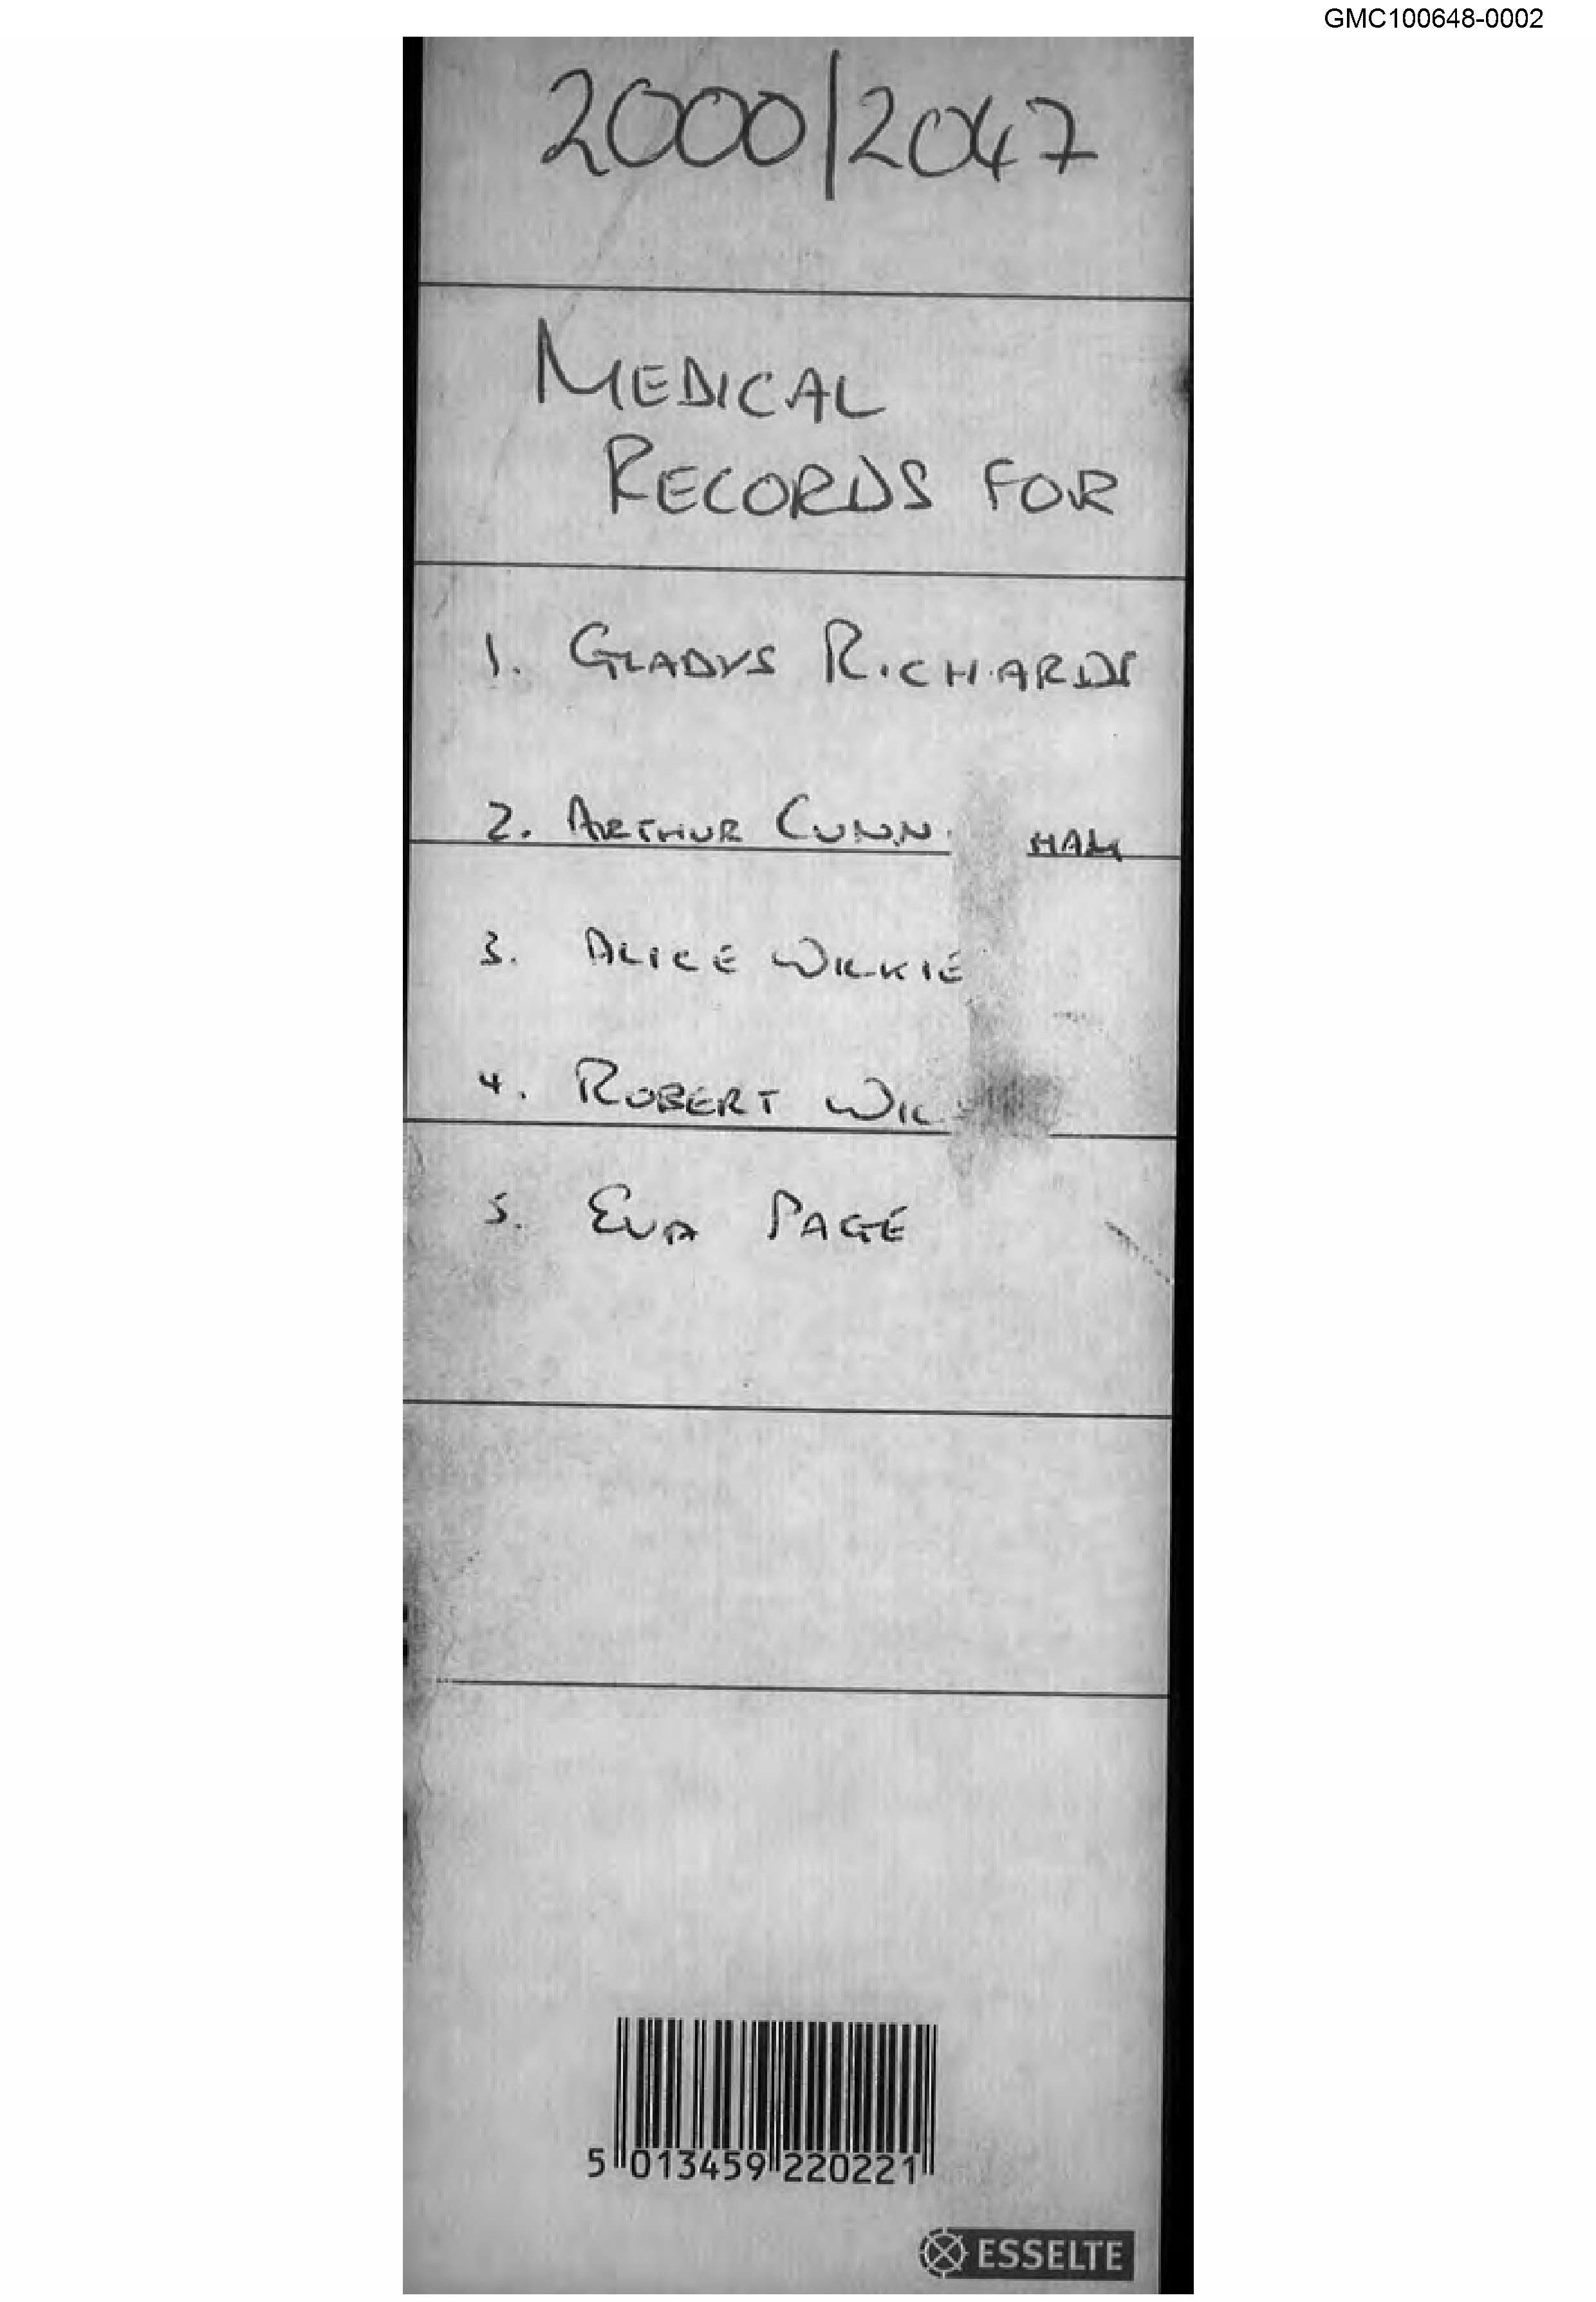 GMC100648-0002
2000/2047
MEDICAL
RECORDS FOR
1. GLADYS RICHARDS
2. ARTHUR CUNN HAM
3. ALICE WILKIE
4. ROBERT WIL
5. EVA PAGE
5 013459 220221
ESSELTE